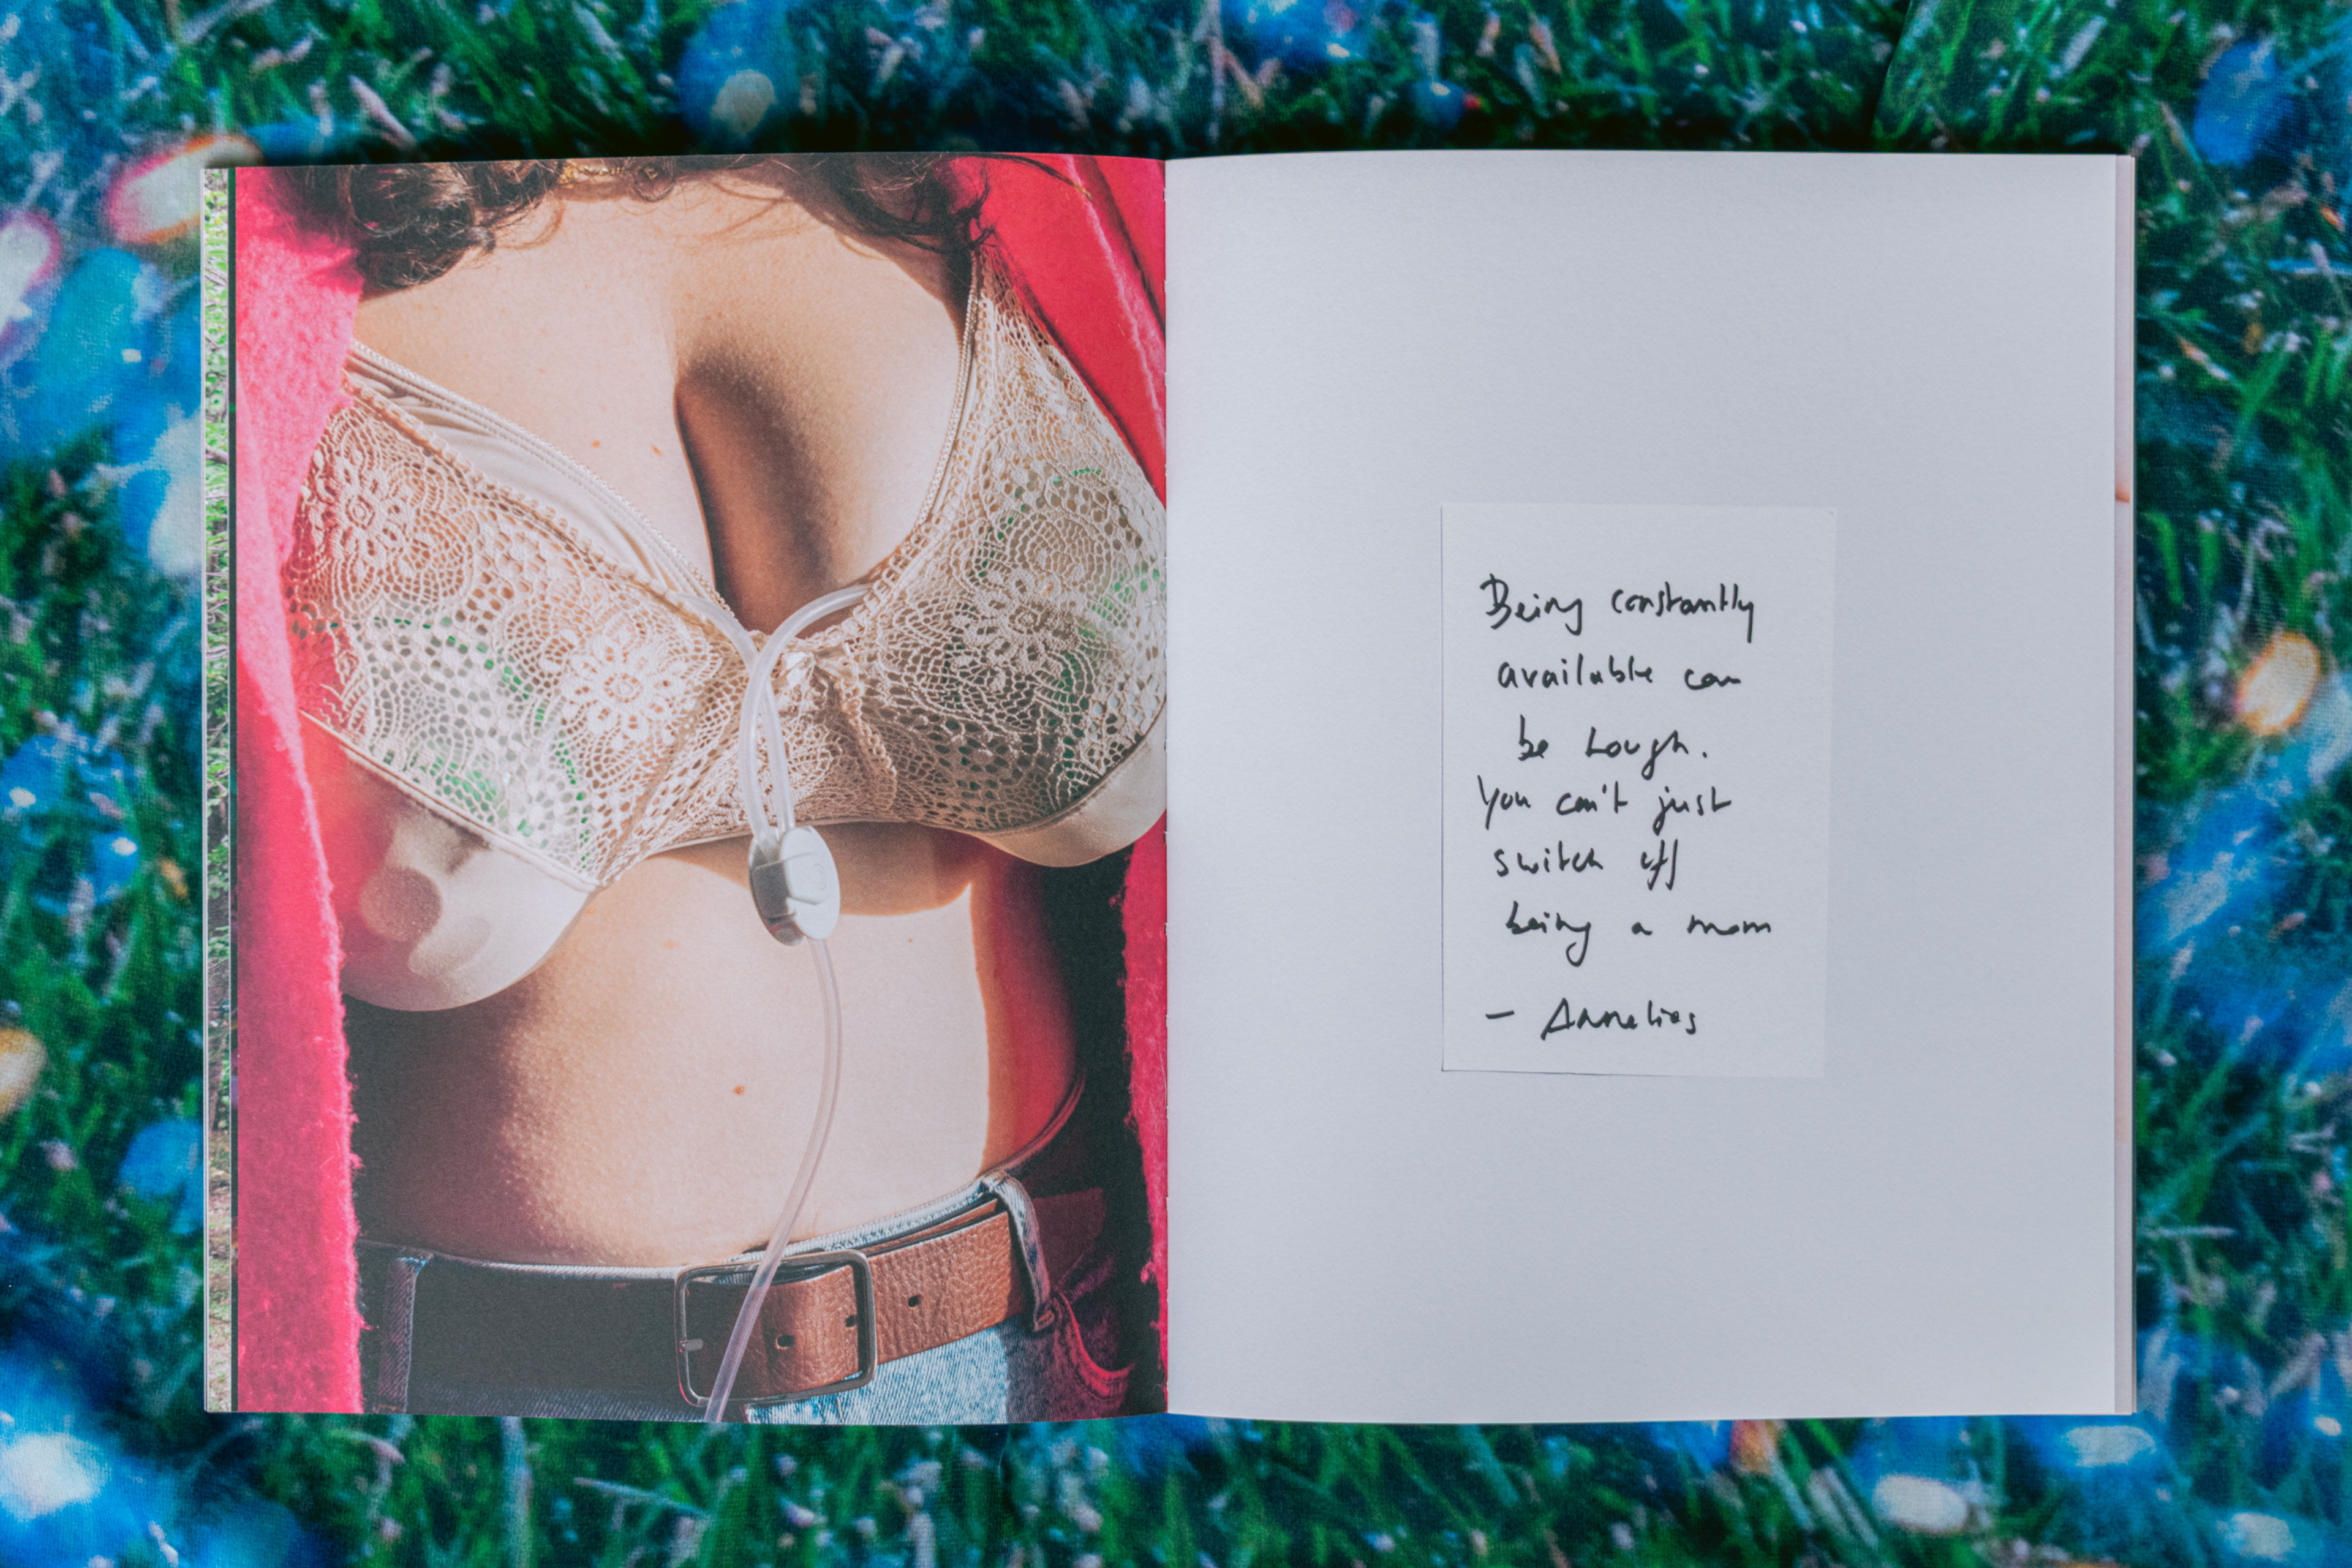 Being constantly
available can
be tough.
You can't just
switch off
being a mom
- Annelies